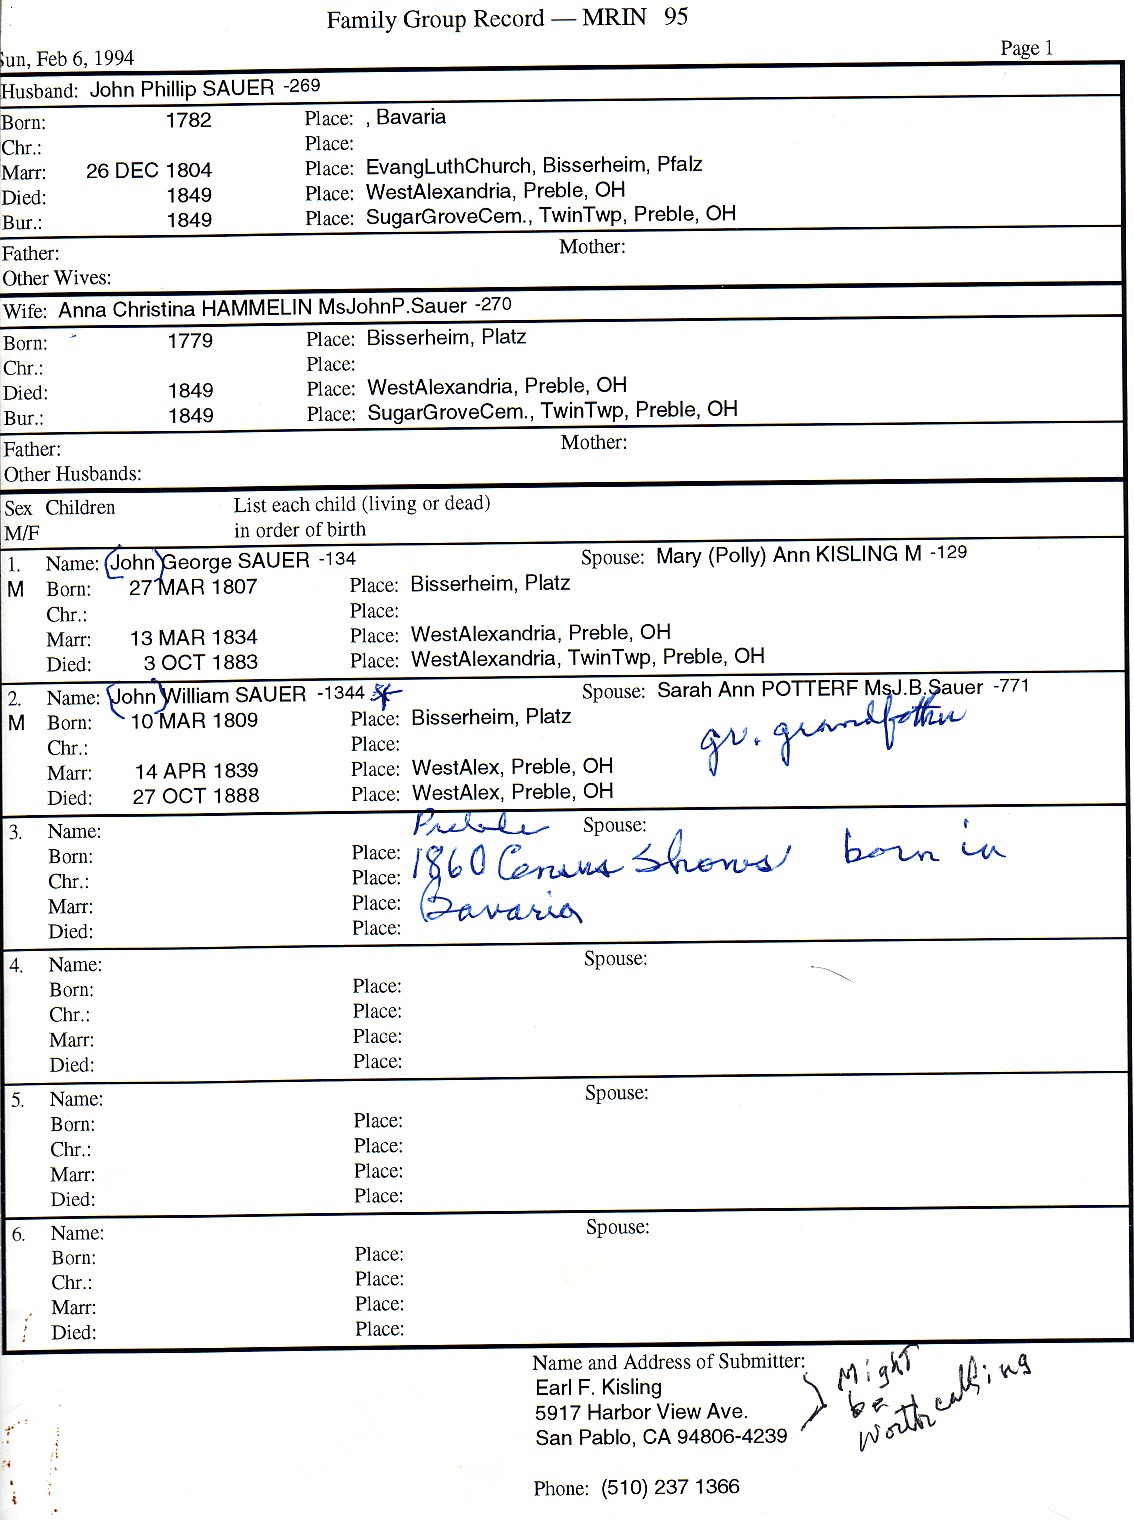 Family Group Record — MRIN 95
Sun, Feb 6, 1994 Page 1
Husband: John Phillip SAUER -269
Born: 1782 Place: , Bavaria
Chr.: Place:
Marr: 26 DEC 1804 Place: EvangLuthChurch, Bisserheim, Pfalz
Died: 1849 Place: WestAlexandria, Preble, OH
Bur.: 1849 Place: SugarGroveCem., TwinTwp, Preble, OH
Father: Mother:
Other Wives:
Wife: Anna Christina HAMMELIN MsJohnP.Sauer -270
Born: 1779 Place: Bisserheim, Platz
Chr.: Place:
Died: 1849 Place: WestAlexandria, Preble, OH
Bur.: 1849 Place: SugarGroveCem., TwinTwp, Preble, OH
Father: Mother:
Other Husbands:
Sex Children List each child (living or dead)
M/F in order of birth
1. Name: (John) George SAUER -134 Spouse: Mary (Polly) Ann KISLING M -129
M Born: 27 MAR 1807 Place: Bisserheim, Platz
Chr.: Place:
Marr: 13 MAR 1834 Place: WestAlexandria, Preble, OH
Died: 3 OCT 1883 Place: WestAlexandria, TwinTwp, Preble, OH
2. Name: (John) William SAUER -1344 * Spouse: Sarah Ann POTTERF MsJ.B.Sauer -771
M Born: 10 MAR 1809 Place: Bisserheim, Platz gr. grandfather
Chr.: Place:
Marr: 14 APR 1839 Place: WestAlex, Preble, OH
Died: 27 OCT 1888 Place: WestAlex, Preble, OH
3. Name: Preble Spouse:
Born: Place: 1860 Census Shows born in
Chr.: Place:
Marr: Place: Bavaria
Died: Place:
4. Name: Spouse:
Born: Place:
Chr.: Place:
Marr: Place:
Died: Place:
5. Name: Spouse:
Born: Place:
Chr.: Place:
Marr: Place:
Died: Place:
6. Name: Spouse:
Born: Place:
Chr.: Place:
Marr: Place:
Died: Place:
Name and Address of Submitter:
Earl F. Kisling
5917 Harbor View Ave.
San Pablo, CA 94806-4239
Might
be
worth calling
Phone: (510) 237 1366